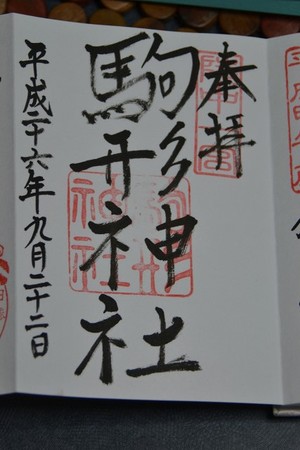 奉拝
駒形神社
平成二十六年九月二十二日